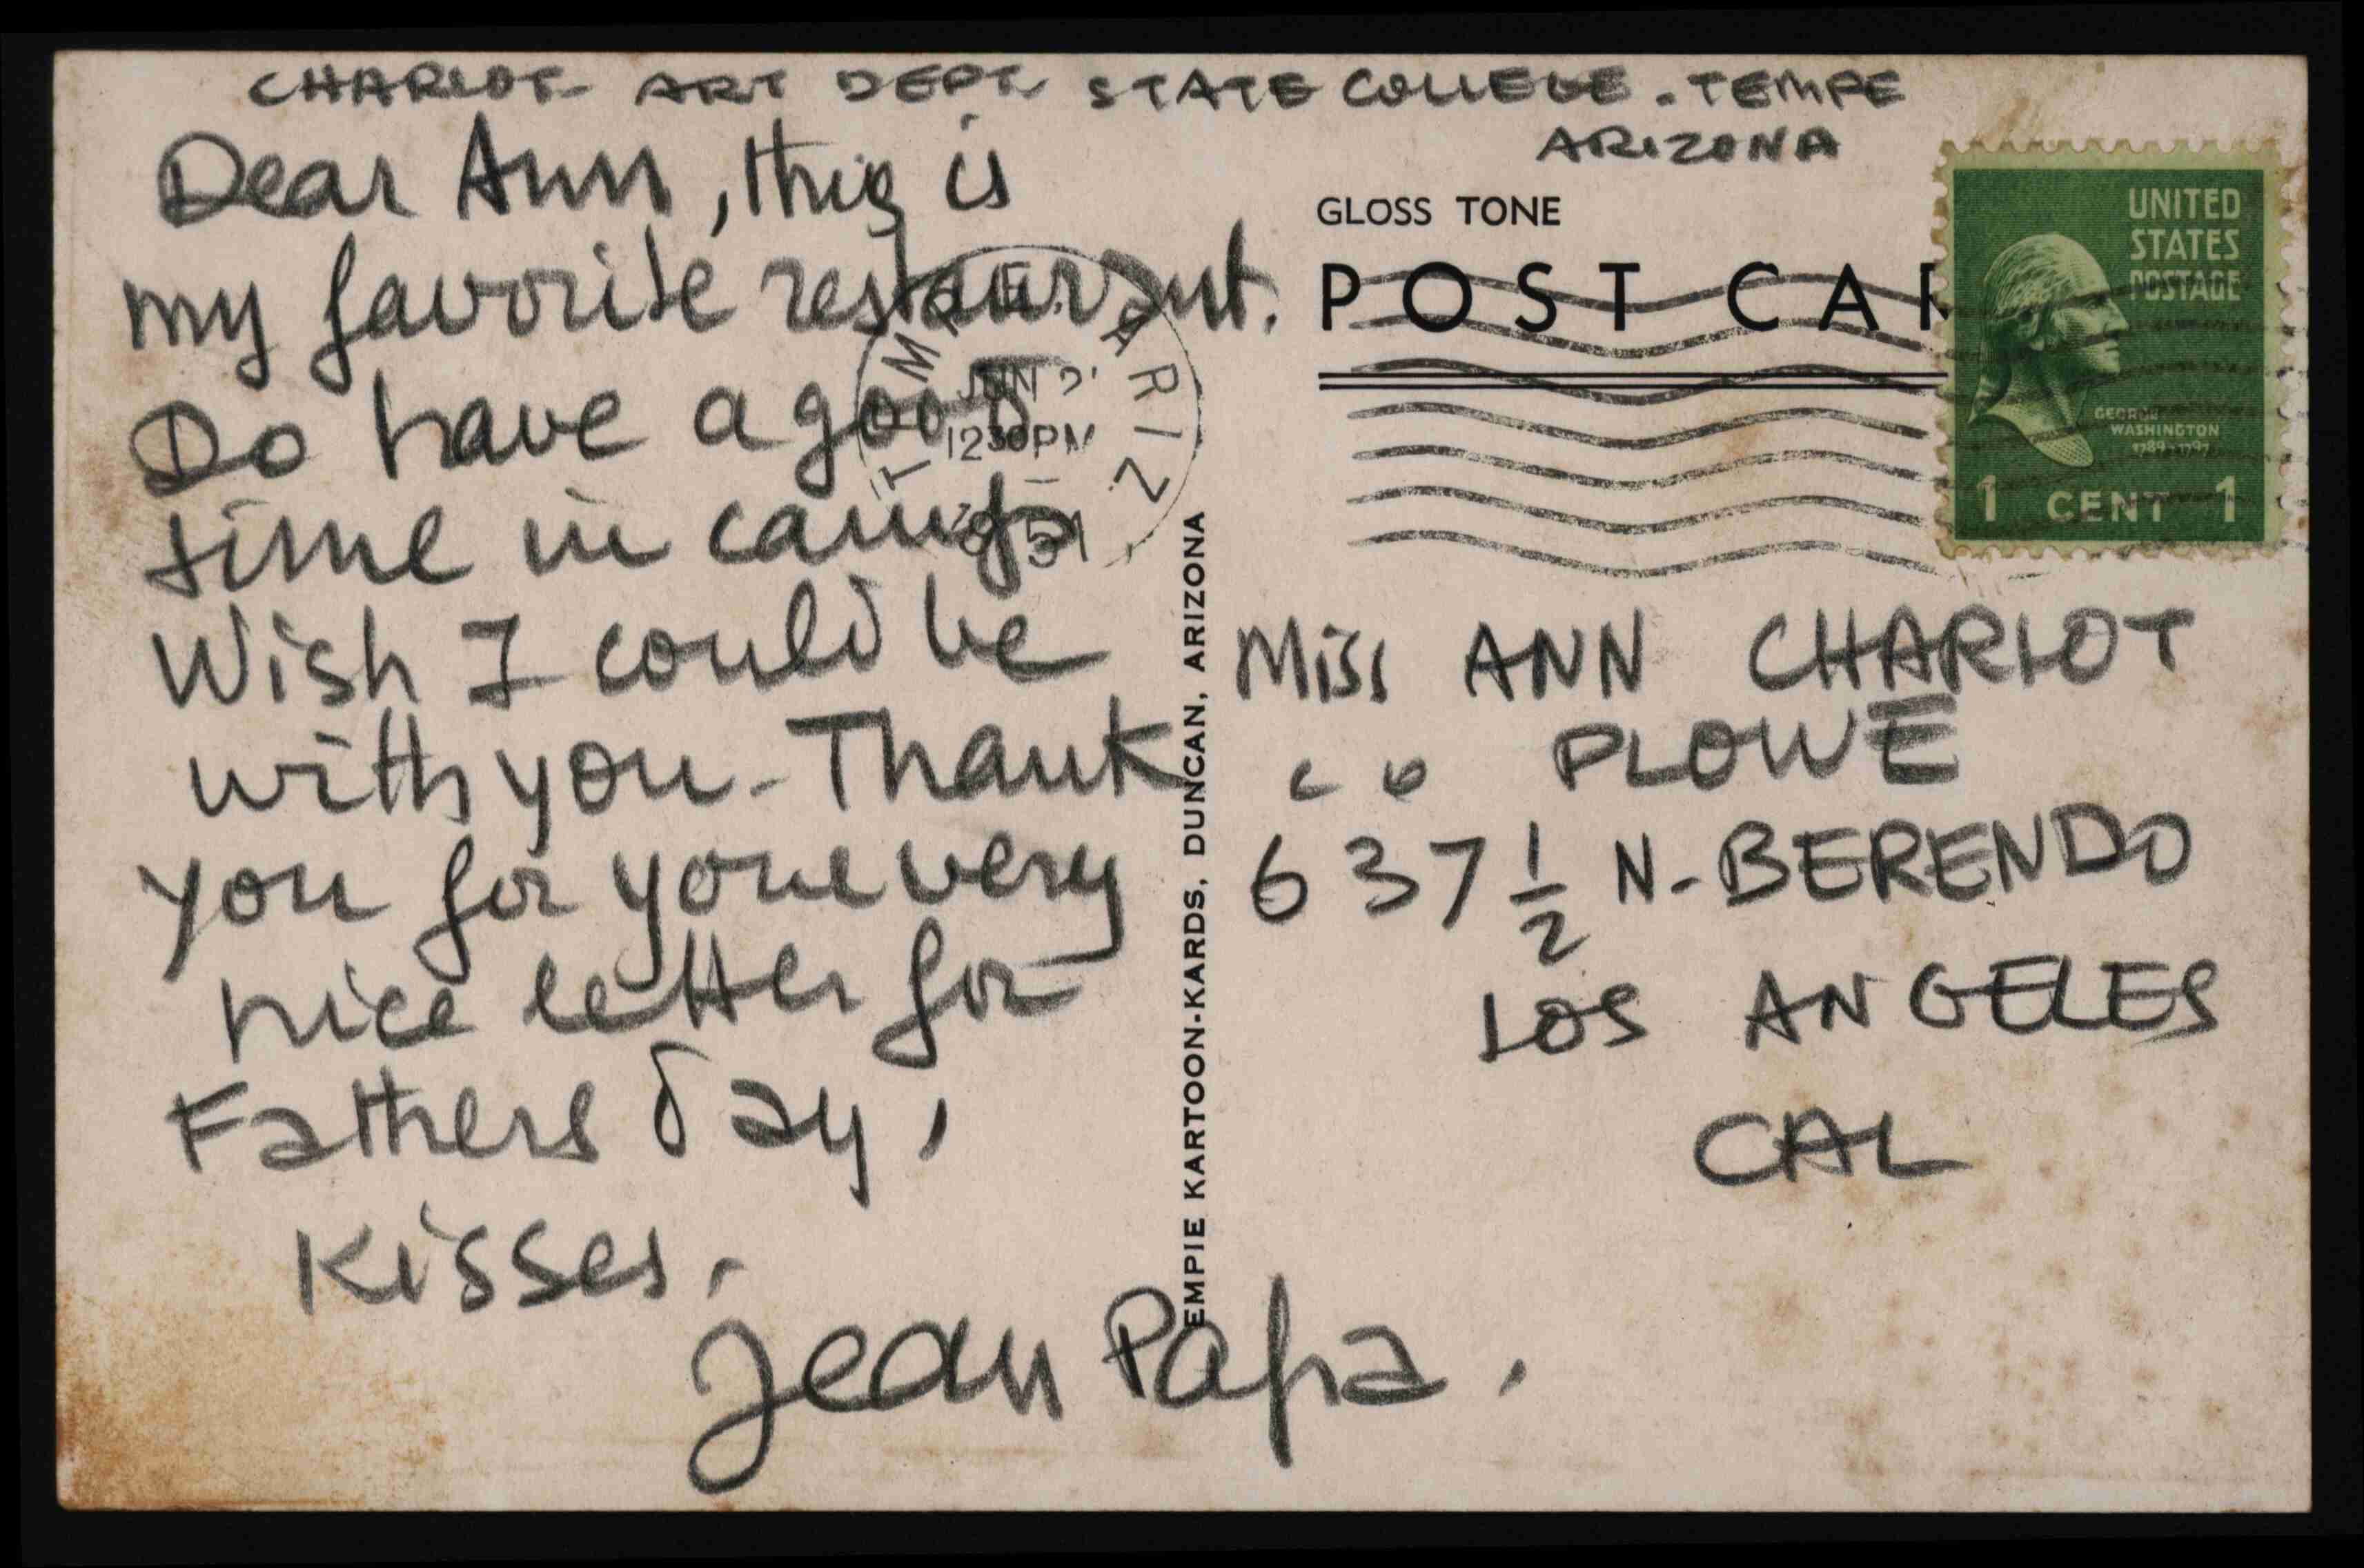 CHARLOT - ART DEPT. STATE COLLEGE. TEMPE
ARIZONA
Dear Ann, this is
my favorite restaurant.
Do have a good
time in camp
Wish I could be
with you - Thank
you for youre very
nice letter for
Fathers day,
Kisses.
Jean Papa.
TEMPE, ARIZ
JUN
12 30 PM
1951
EMPIE KARTOON-KARDS, DUNCAN, ARIZONA
GLOSS TONE
POST CAR
UNITED
STATES
POSTAGE
GEORGE
WASHINGTON
1789-1797
1 CENT 1
Miss ANN CHARLOT
c o PLOWE
637 1/2 N-BERENDO
LOS ANGELES
CAL